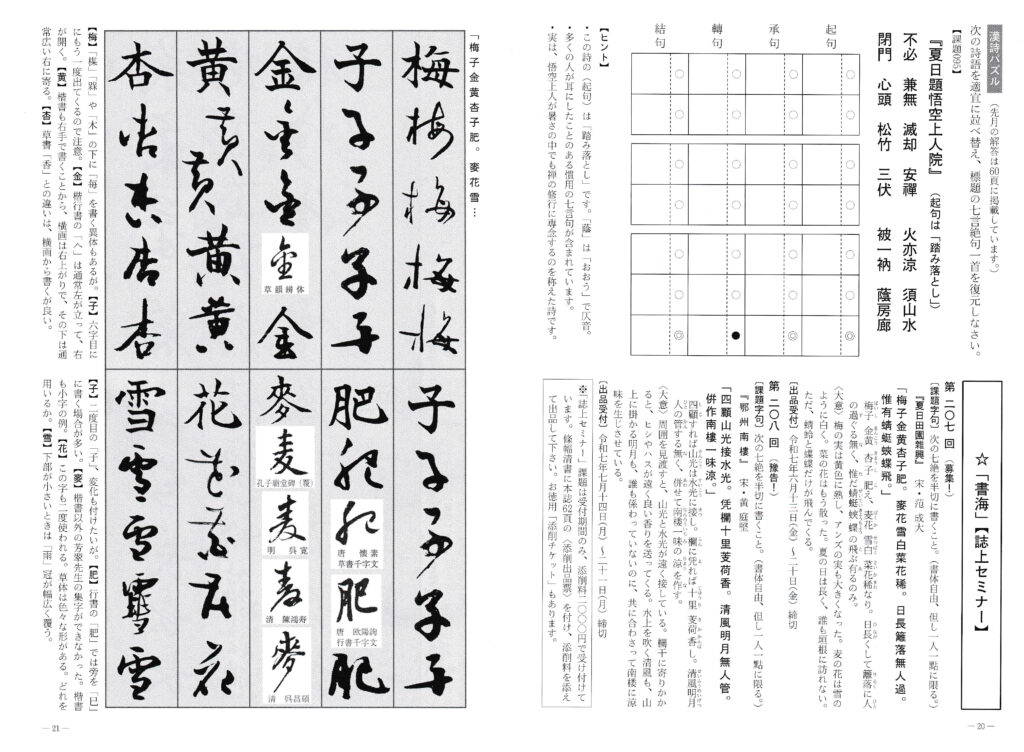 漢詩パズル
(先月の解答は60頁に掲載しています。)
次の詩語を適宜に並べ替え、標題の七言絶句一首を復元しなさい。
【課題695】
『夏日題悟空上人院』 (起句は「踏み落とし」)
不必 兼無 滅却 安禪 火亦涼 須山水
閉門 心頭 松竹 三伏 被一衲 蔭房廊
起句
承句
轉句
結句
【ヒント】
・この詩の(起句)は「踏み落とし」です。「蔭」は「おおう」で仄音。
・多くの人が耳にしたことのある慣用の七言句が含まれています。
・実は、悟空上人が暑さの中でも禅の修行に専念するのを称えた詩です。
☆「書海」【誌上セミナー】
第二〇七回(募集!)
[課題字句] 次の七絶を半切に書くこと。(書体自由、但し一人一點に限る。)
『夏日田園雜興』 宋・范成大
「梅子金黄杏子肥。麥花雪白菜花稀。日長籬落無人過。
惟有蜻蜓蛺蝶飛。」
梅子金黄杏子肥え、麦花雪白菜花稀なり。日長くして籬落に人
の過ぐる無く、惟だ蜻蜓蛺蝶の飛ぶ有るのみ。
(大意) 梅の実は黄色に熟し、アンズの実も大きくなった。麦の花は雪の
ように白く。菜の花はもう散った。夏の日は長く、誰も垣根に訪れない。
ただ、蜻蛉と蝶蝶だけが飛んでくる。
[出品受付] 令和七年六月十三日(金)~二十日(金)締切
第二〇八回(豫告!)
[課題字句] 次の七絶を半切に書くこと。(書体自由、但し一人一點に限る。)
『鄂州南樓』 宋・黃庭堅
「四顧山光接水光。凭欄十里芰荷香。清風明月無人管。
併作南樓一味涼。」
四顧すれば山光は水光に接し。欄に凭れば十里芰荷香し。清風明月
人の管する無く、併せて南楼一味の涼を作す。
(大意) 周囲を見渡すと、山光と水光が遠く接している。欄干に寄りかか
ると、ヒシやハスが遠く良い香りを送ってくる。水上を吹く清風も、山
上に掛かる明月も、誰も係わっていないのに、共に合わさって南楼に涼
味を生じさせている。
[出品受付] 令和七年七月十四日(月)~二十一日(月)締切
※「誌上セミナー」課題は受付期間のみ、添削料二〇〇〇円で受け付けて
います。條幅清書に本誌62頁の〈添削出品票〉を付け、添削料を添え
て出品して下さい。お徳用「添削チケット」もあります。
— 20 —
「梅子金黄杏子肥。麥花雪…
梅梅梅梅梅
子子子子子
金金金金金
草韻辨体
黄黄黄黄黄
杏杏杏杏杏
子子子子子
肥肥肥肥肥
唐 懷素
草書千字文
唐 欧陽詢
行書千字文
麥麦麦麦麥
孔子廟堂碑(覆)
明 呉寛
清 陳鴻寿
清 呉昌碩
花花花花花
雪雪雪雪雪
【梅】「楳」「槑」や「木」の下に「毎」を書く異体もあるが。【子】六字目に
にもう一度出てくるので注意。【金】楷行書の「へ」は通常左が立って、右
が開く。【黄】楷書も右手で書くことから、横画は右上がりで、その下は通
常広い右に寄る。【杏】草書「香」との違いは、横画から書くが良い。
【子】二度目の「子」、変化も付けたいが。【肥】行書の「肥」では旁を「巳」
に書く場合が多い。【麥】楷書以外の芳翠先生の集字ができなかった。楷書
も小字の例。【花】この字も二度使われる。草体は色々な形がある。どれを
用いるか。【雪】下部が小さいときは「雨」冠が幅広く覆う。
— 21 —